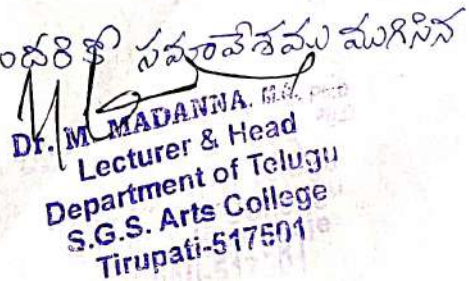 ందరికీ సమావేశము ముగిసిన
Dr. M. MADANNA. M.A.
Lecturer & Head
Department of Telugu
S.G.S. Arts College
Tirupati-517501